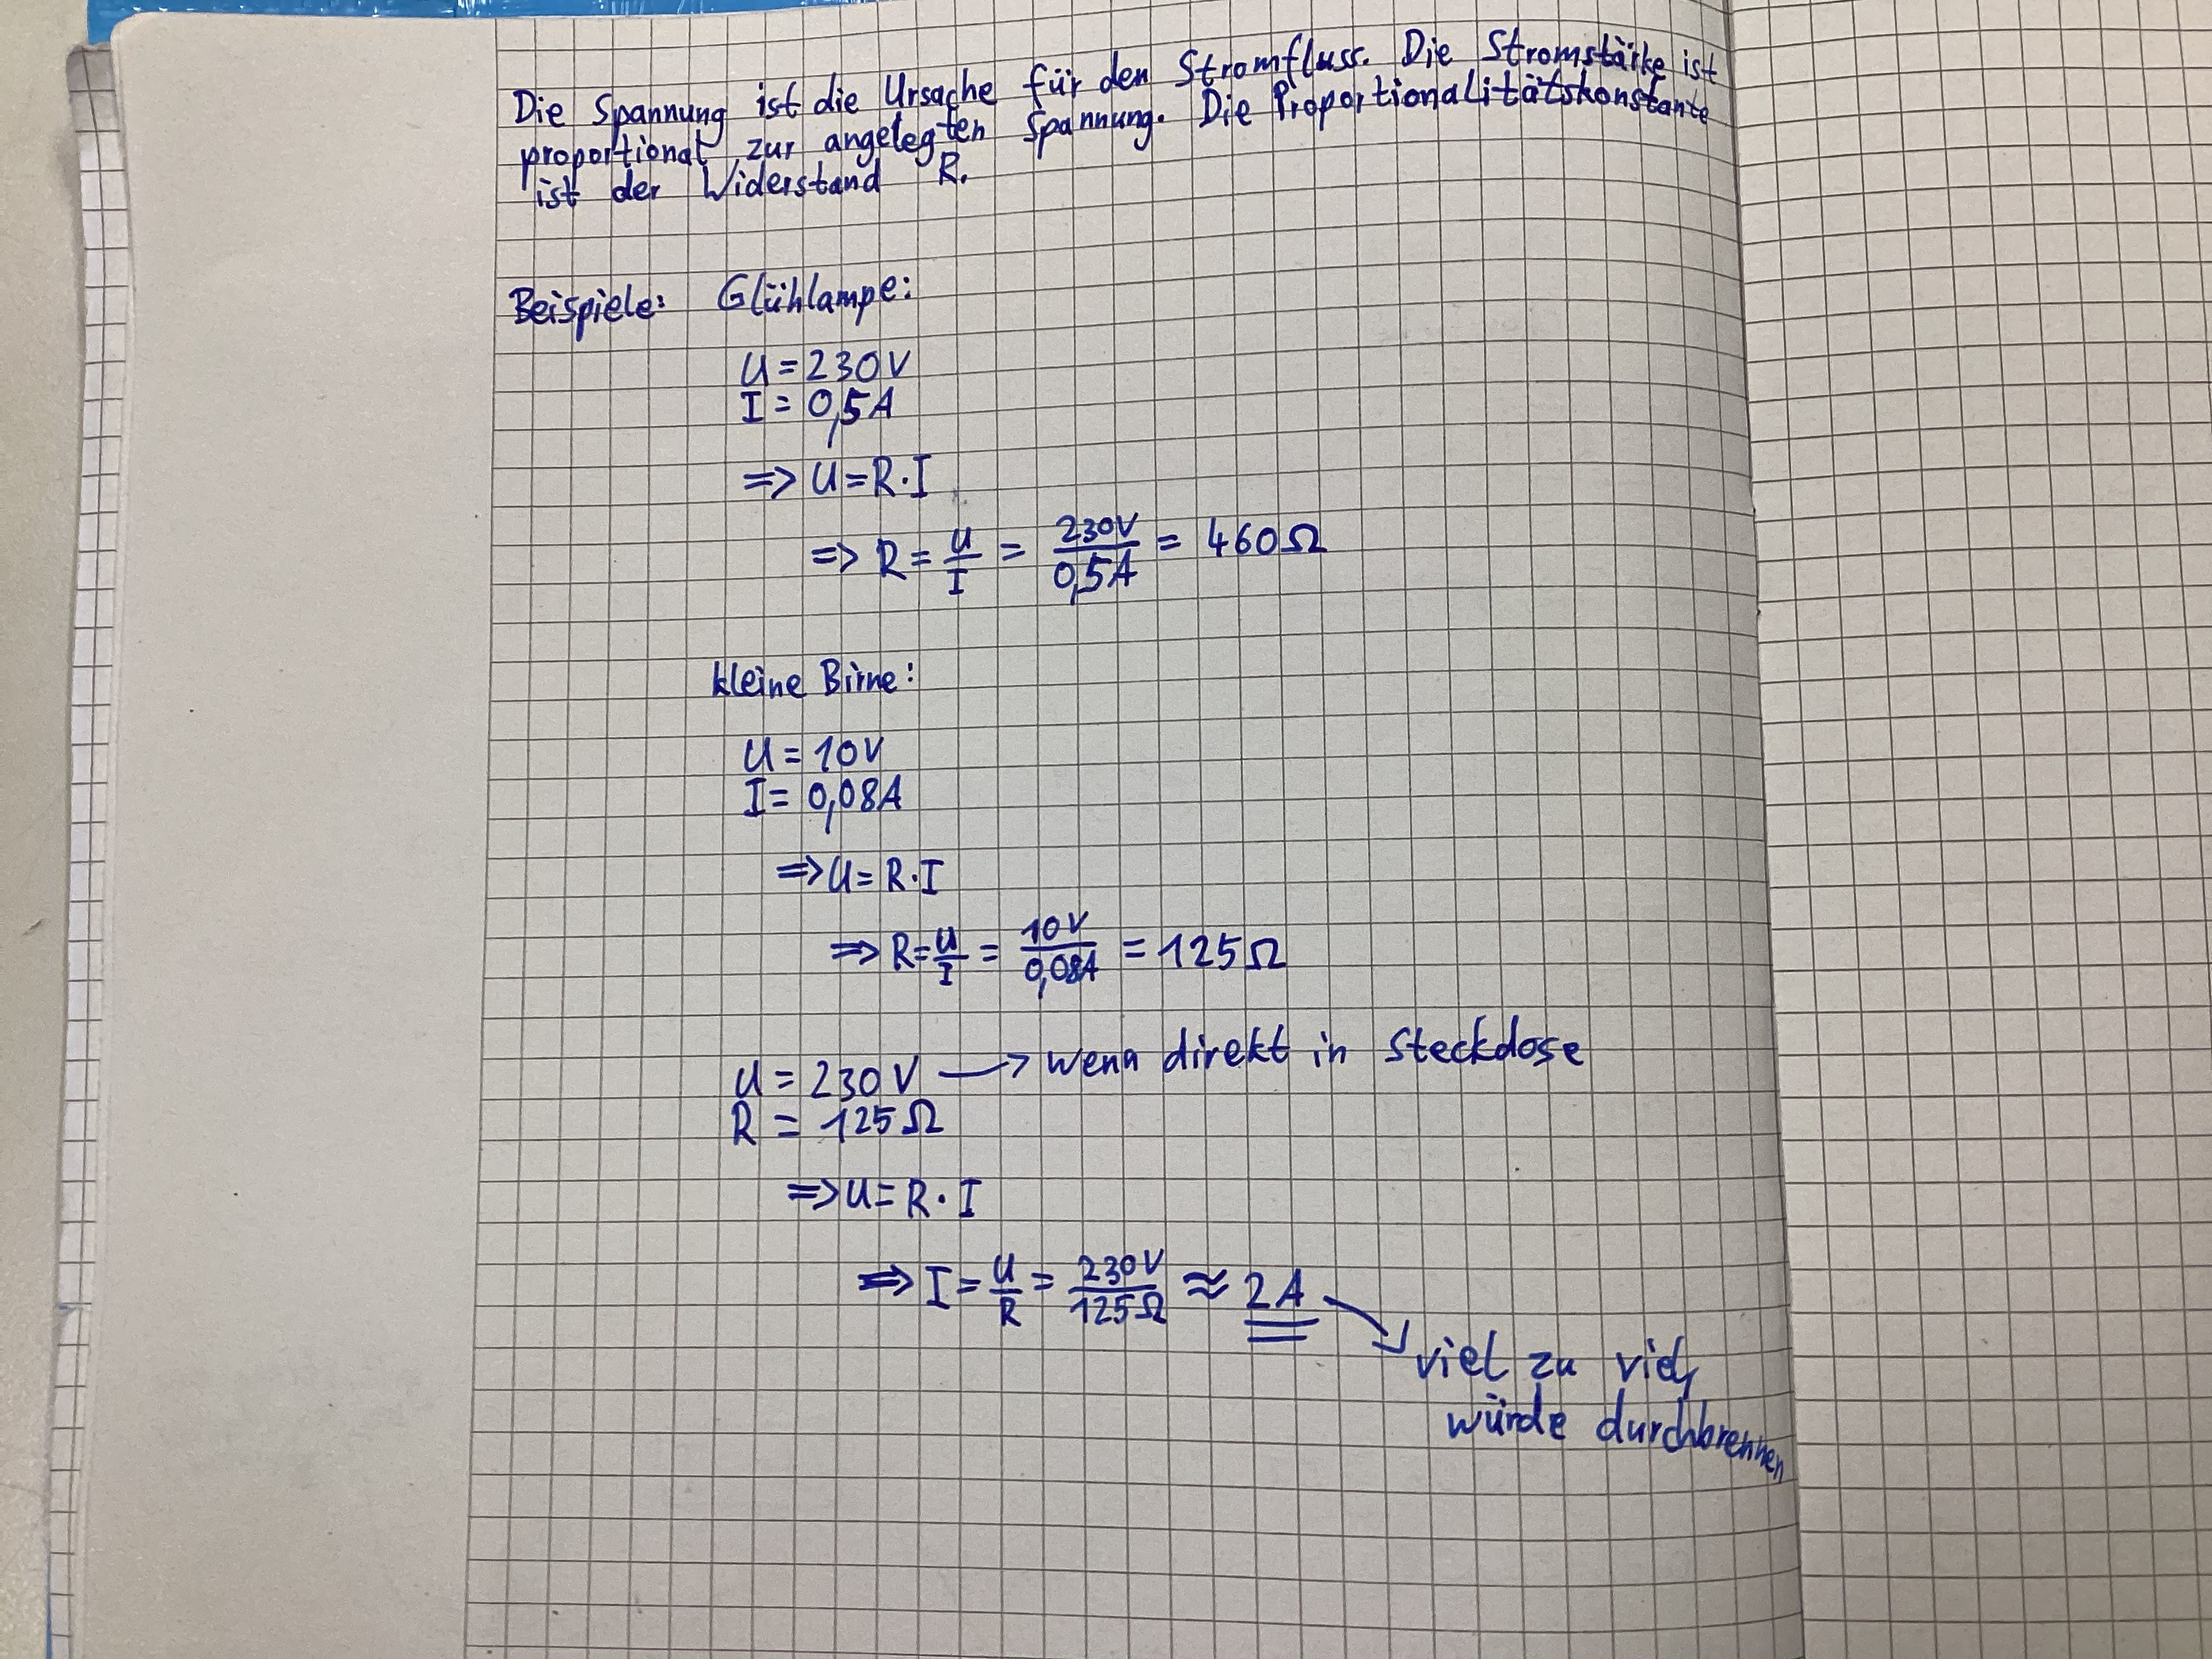 Die Spannung ist die Ursache für den Stromfluss. Die Stromstärke ist
proportional zur angelegten Spannung. Die Proportionalitätskonstante
ist der Widerstand R.
Beispiele: Glühlampe:
U = 230V
I = 0,5A
=> U = R·I
=> R = U/I = 230V/0,5A = 460Ω
kleine Birne:
U = 10V
I = 0,08A
=> U = R·I
=> R = U/I = 10V/0,08A = 125Ω
U = 230V —> wenn direkt in Steckdose
R = 125Ω
=> U = R·I
=> I = U/R = 230V/125Ω ≈ 2A
viel zu viel,
würde durchbrennen